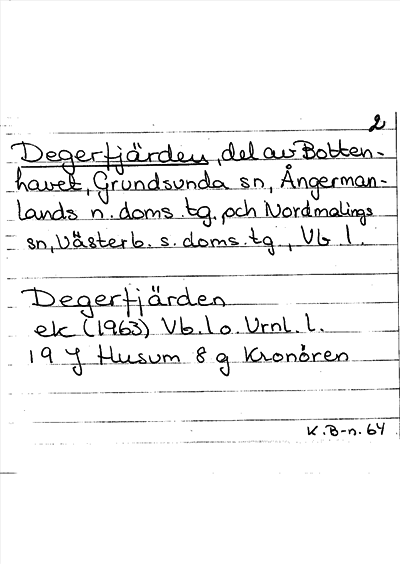 2
Degerfjärden, del av Botten-
havet, Grundsunda sn, Ångerman-
lands n. doms. tg. och Nordmalings
sn, Västerb. s. doms. tg., Vb l.
Degerfjärden
ek (1963) Vb. l o. Vrnl. l.
19 J Husum 8 g Kronören
K. B-n. 64